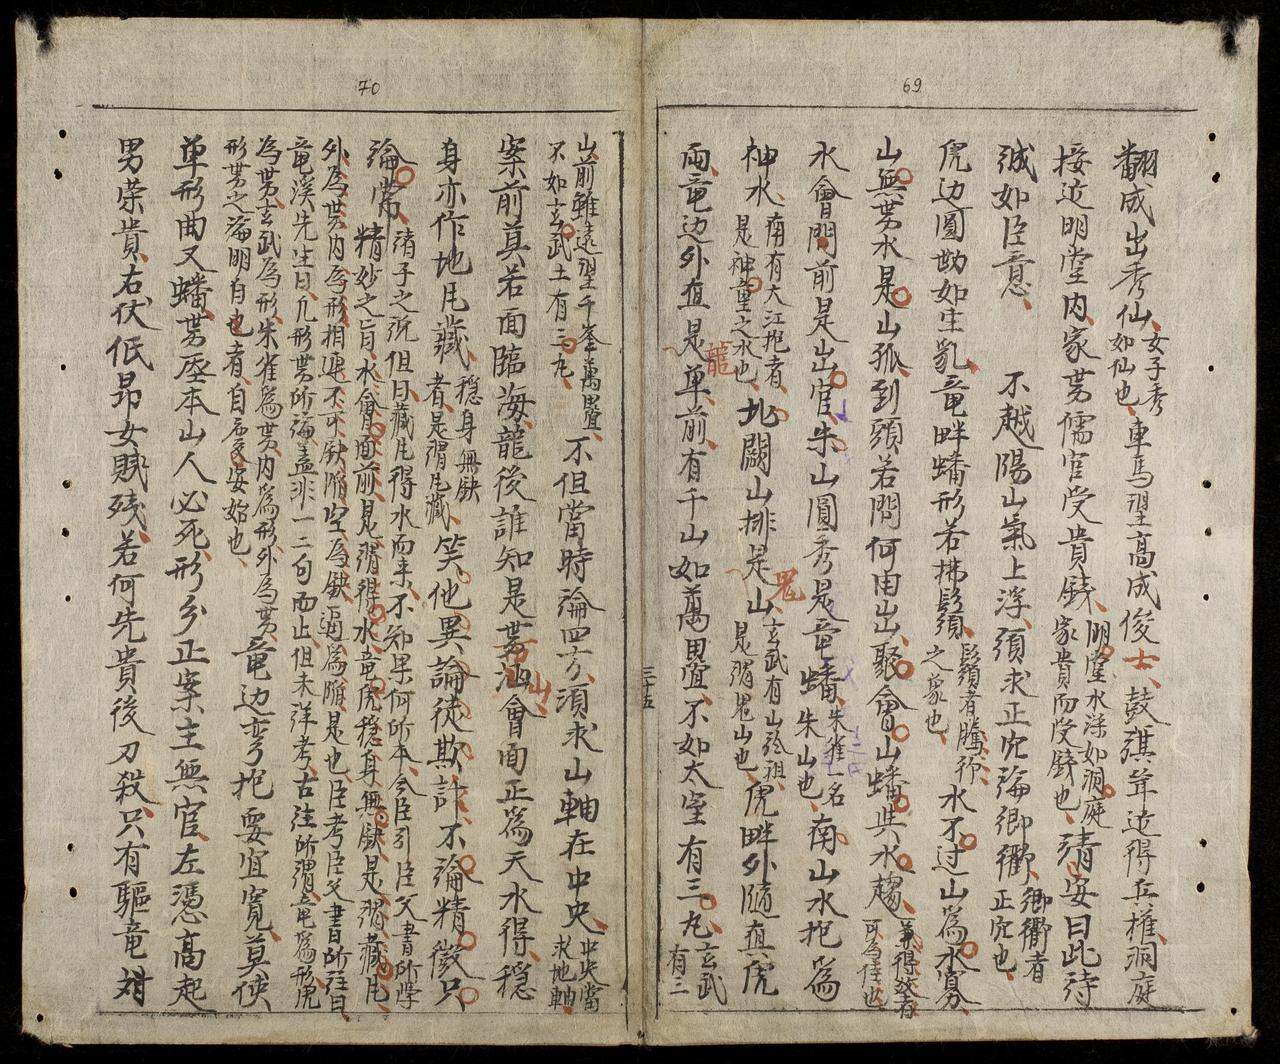 69
翻成出秀仙女子秀如仙也車馬望高成俊士鼓琪年边得兵权洞庭
接近明堂内家势儒官受貴錢明堂水深如洞庭家貴而受錢也請安曰此詩
誠如臣意不越陽山氣上浮須求正穴論卿衢卿衢者正穴也
虎边圓勘如生乳竜畔蟠形若拂鬚鬚者騰弥之象也水不过山為水寡
山無势水是山孤到頭若問何由出聚會山蟠共水趨可為佳也
水會門前是出官朱山圓秀是竜蟠朱雀一名朱山也南山水抱為
神水南有大江抱者是神童之水也北闕山排是山玄武有山弥祖是謂鬼山也虎畔外随真虎
兩竜边外直是单前有千山如萬疊不如太室有三九玄武有三
三十五
70
山前雖遠望千峯萬疊不如玄武土有三九不但當時論四方須求山軸在中央中央當求地軸
案前真若面臨海龍後誰知是势涵會面正為天水得穏
身亦作地凡藏穏身無缺者是謂凡藏笑他異論徒欺詐不論精微只
論常諸子之說但曰藏凡得水而来不知果何所本今臣引臣父書所學精妙之旨水會面前是謂得水竜虎穏身無缺是謂藏凡
外為势内為形相連不可缺順空為缺過為順是也臣考臣父書所註曰
竜溪先生曰凡形势所論盖非一二句而止但未詳考古注所謂竜為形虎
為势玄武為形朱雀為势内為形外為势
形势之論明白也者自后安始也竜边弯抱要宜寬莫使
单形曲又蟠势壓本山人必死形多正案主無官左憑高起
男荣貴右伏低昂女賤残若何先貴後刀殺只有驅竜対